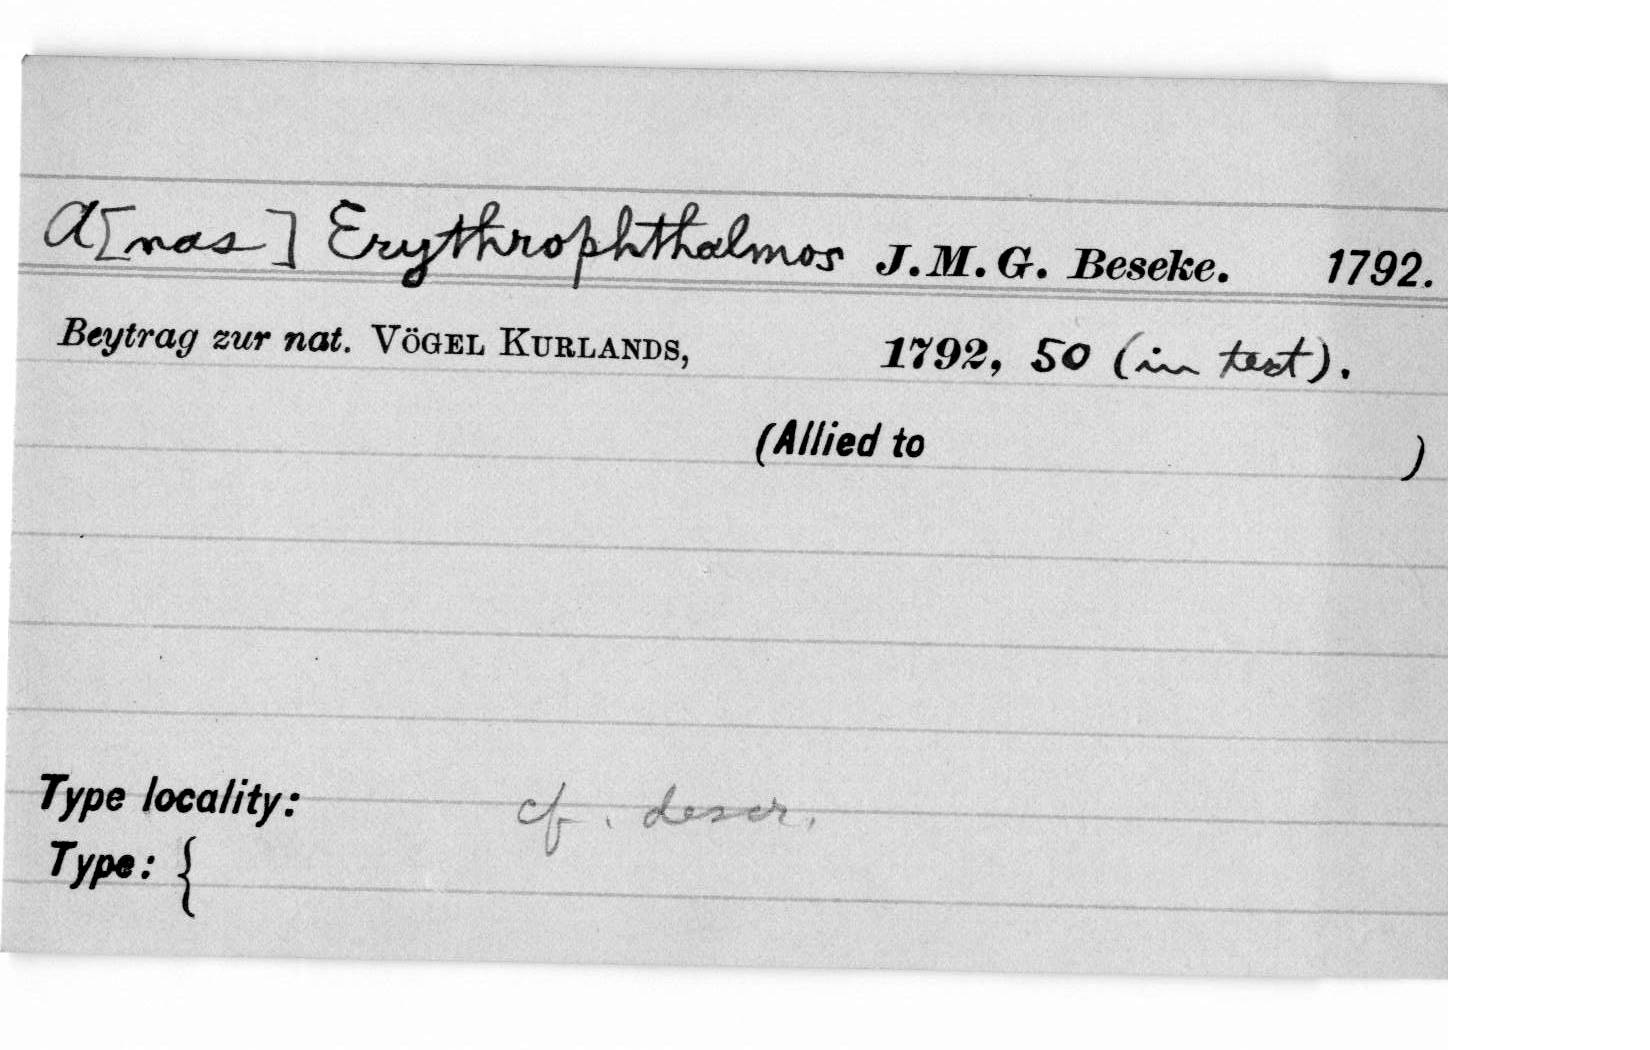 A[nas] Erythrophthalmos J. M. G. Beseke. 1792.
Beytrag zur nat. VÖGEL KURLANDS, 1792, 50 (in text).
(Allied to )
Type locality: cf. descr.
Type: {